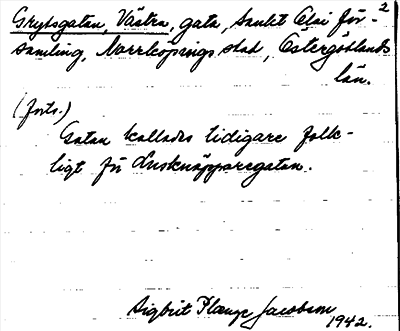 2
Grytsgatan, Västra, gata, Sankt Olai för-
samling, Norrköpings stad, Östergötlands
län.
(forts.)
Gatan kallades tidigare folk-
ligt för Lusknäpparegatan.
Sigbrit Plænge Jacobson
1942.